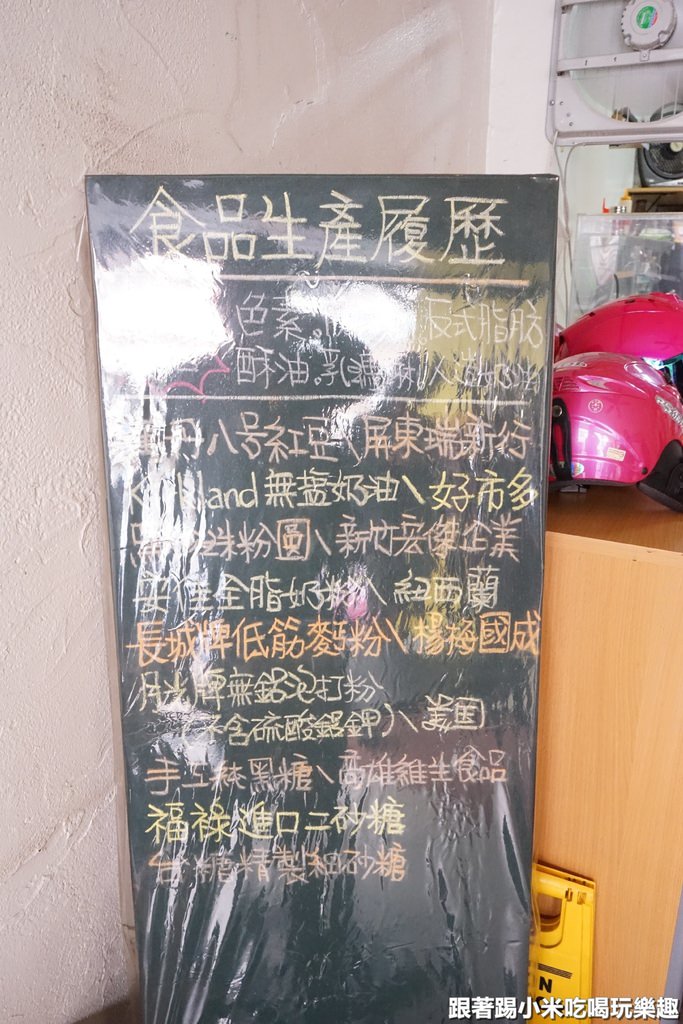 食品生產履歷
色素。 反式脂肪
酥油。乳瑪琳。人造奶油
丹八號紅豆\屏東瑞新行
Kirkland無盐奶油\好市多
粉圓\新竹宏傑企業
安佳全脂奶粉\紐西蘭
長城牌低筋麵粉\楊梅國成
月光牌無鋁泡打粉
(不含硫酸鋁鉀)\美国
手工純黑糖\高雄維生食品
福祿進口二砂糖
台糖精製細砂糖
N
跟著踢小米吃喝玩樂趣